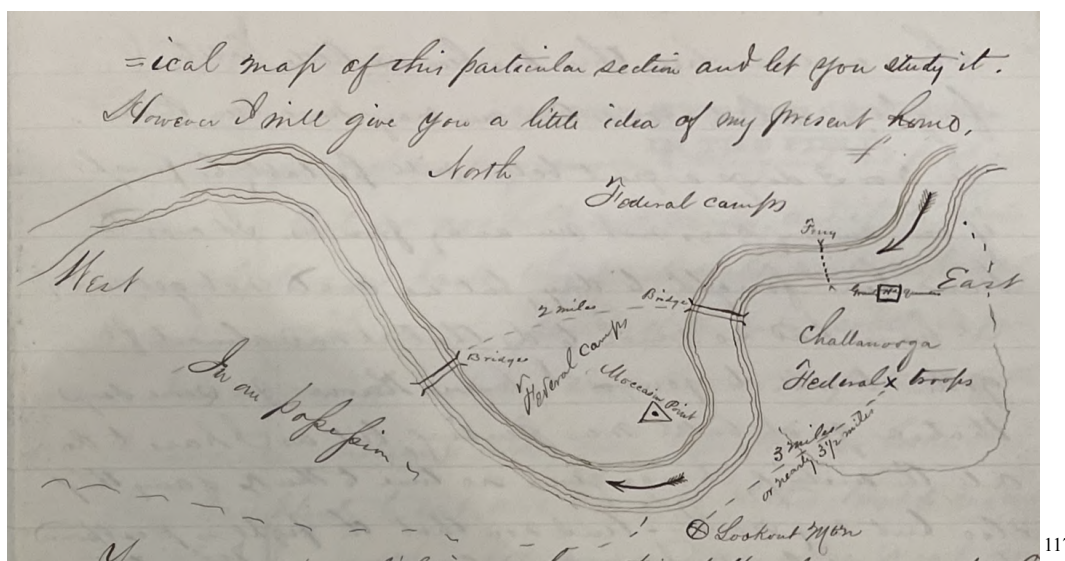 =ical map of this particular section and let you study it.
However I will give you a little idea of my present home.
North
Federal camps
Ferry
West
East
2 miles
Bridge
Bridge
Federal camps
Moccasin Point
Chattanooga
Federal x troops
In our possession
3 miles
or nearly 3½ miles
Lookout Mon
117